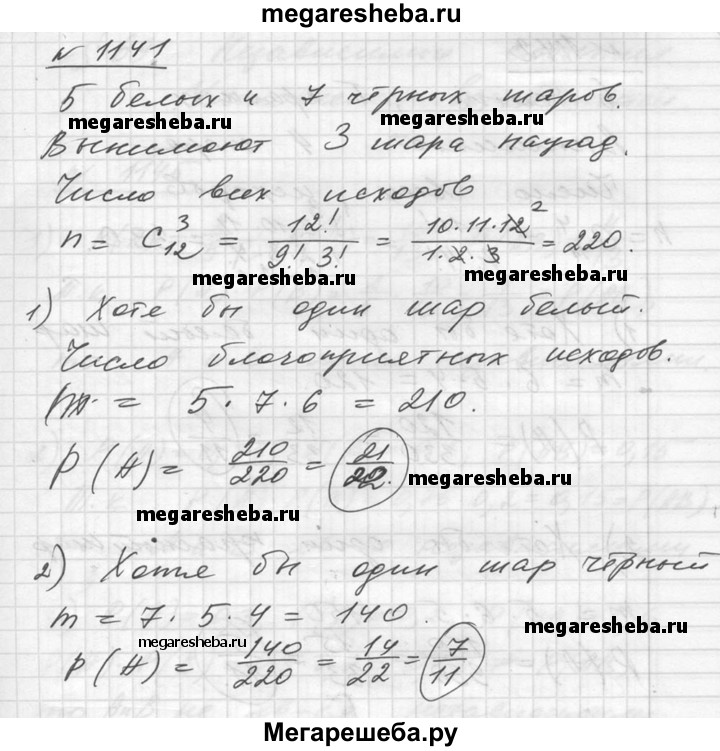 megaresheba.ru
№ 1141
5 белых и 7 чёрных шаров.
megaresheba.ru megaresheba.ru
Вынимают 3 шара наугад.
Число всех исходов
n = C₁₂³ = 12!/(9! 3!) = (10.11.12²)/(1.2.3) = 220.
megaresheba.ru megaresheba.ru
1) Хотя бы один шар белый.
Число благоприятных исходов.
m = 5 · 7 · 6 = 210.
P(A) = 210/220 = 21/22.
megaresheba.ru
megaresheba.ru
2) Хотя бы один шар чёрный
m = 7 · 5 · 4 = 140.
megaresheba.ru megaresheba.ru
P(A) = 140/220 = 14/22 = 7/11
Мегарешеба.ру